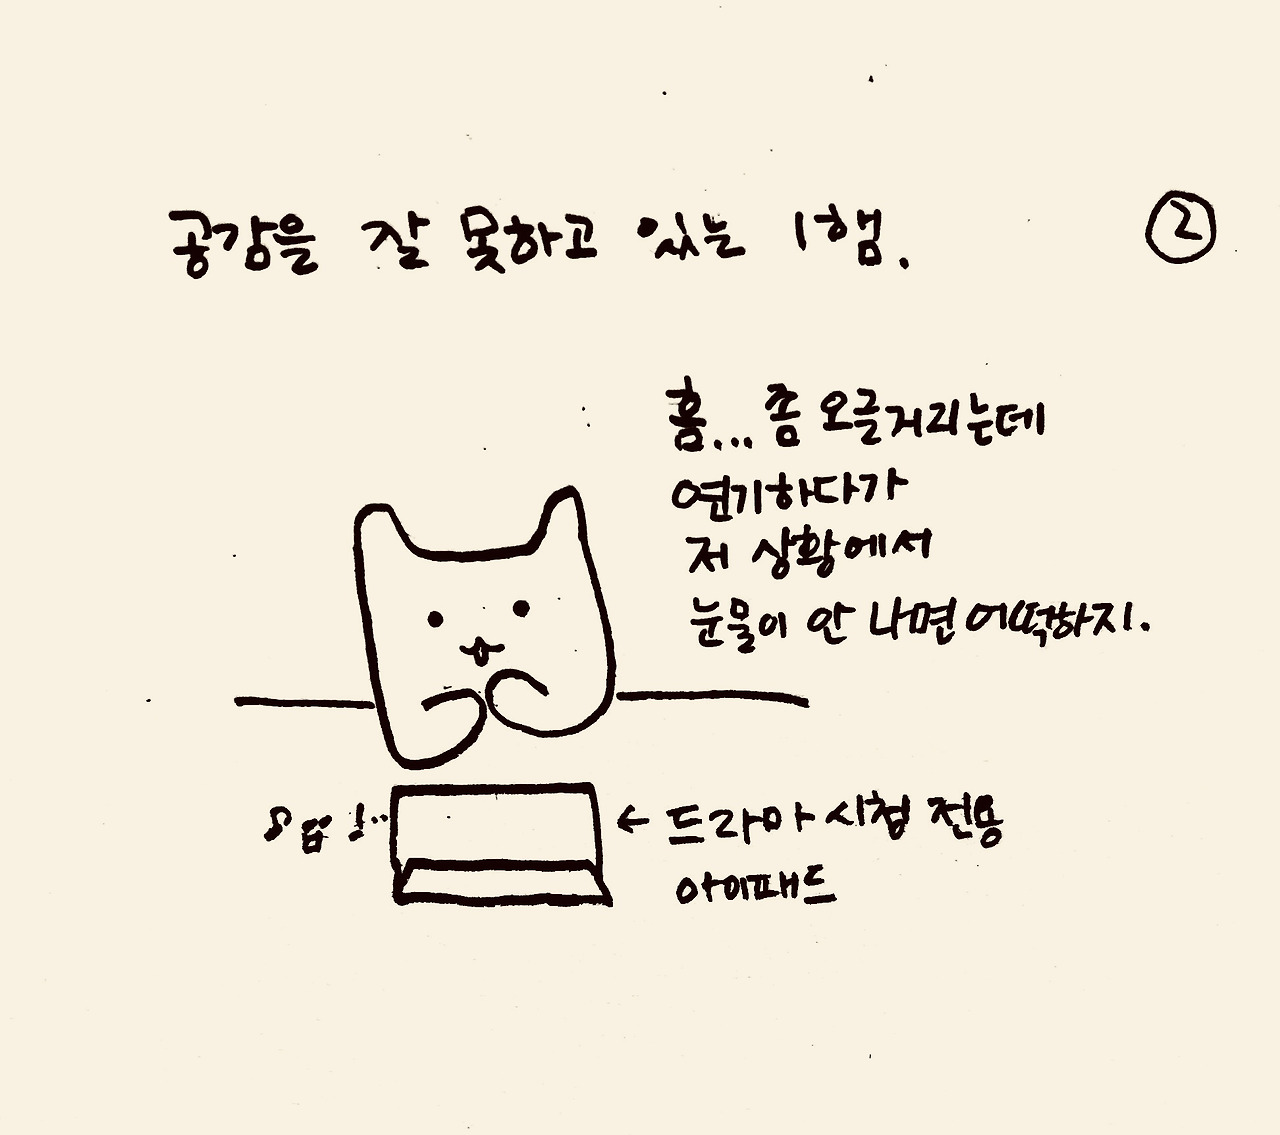 공감을 잘 못하고 있는 1햄.
②
흠... 좀 오글거리는데
연기하다가
저 상황에서
눈물이 안 나면 어떡하지.
← 드라마 시청 전용
아이패드